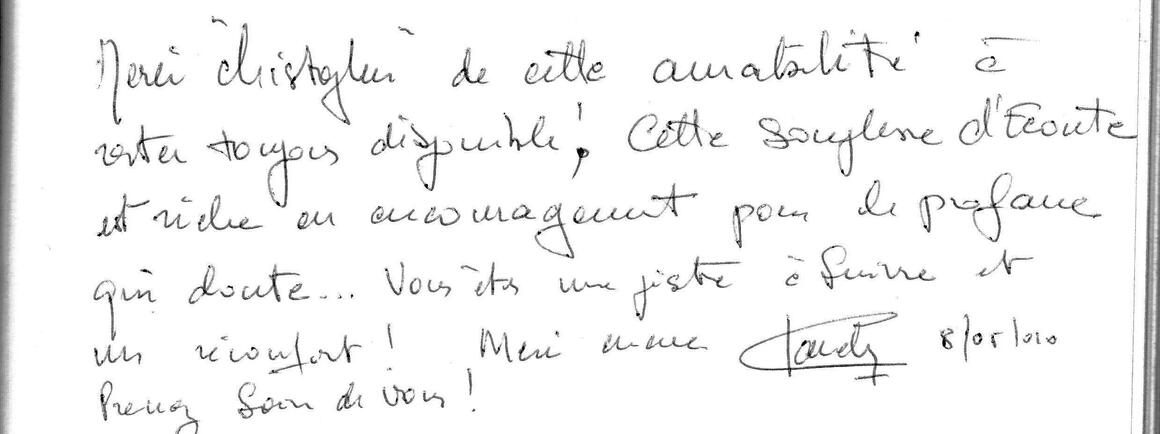 Merci Christophe de cette amabilité à
rester toujours disponible ! Cette souplesse d'Ecoute
est riche en encouragement pour le profane
qui doute... Vous êtes une piste à suivre et
un réconfort ! Merci encore 8/05/010
Prenez soin de vous !